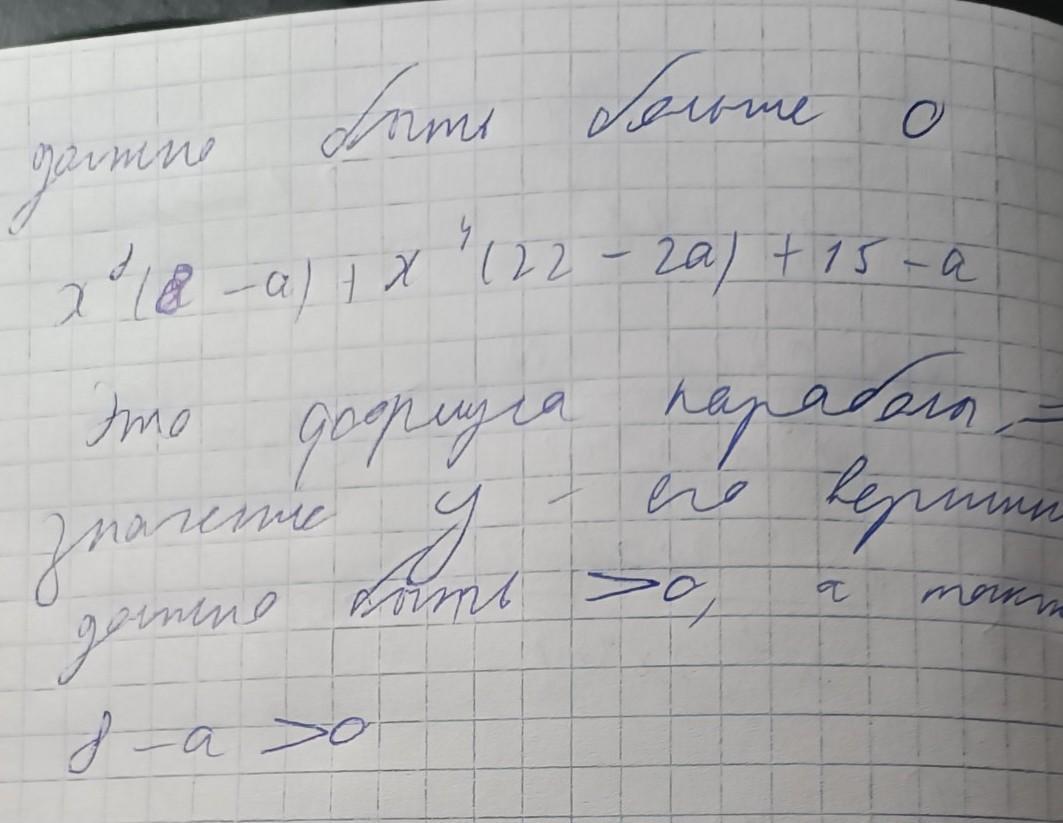 должно быть больше 0
x⁸(8 - a) + x⁴(22 - 2a) + 15 - a
Это формула параболы, =
значение y - его вершин
должно быть >0, а такж
8 - a >0